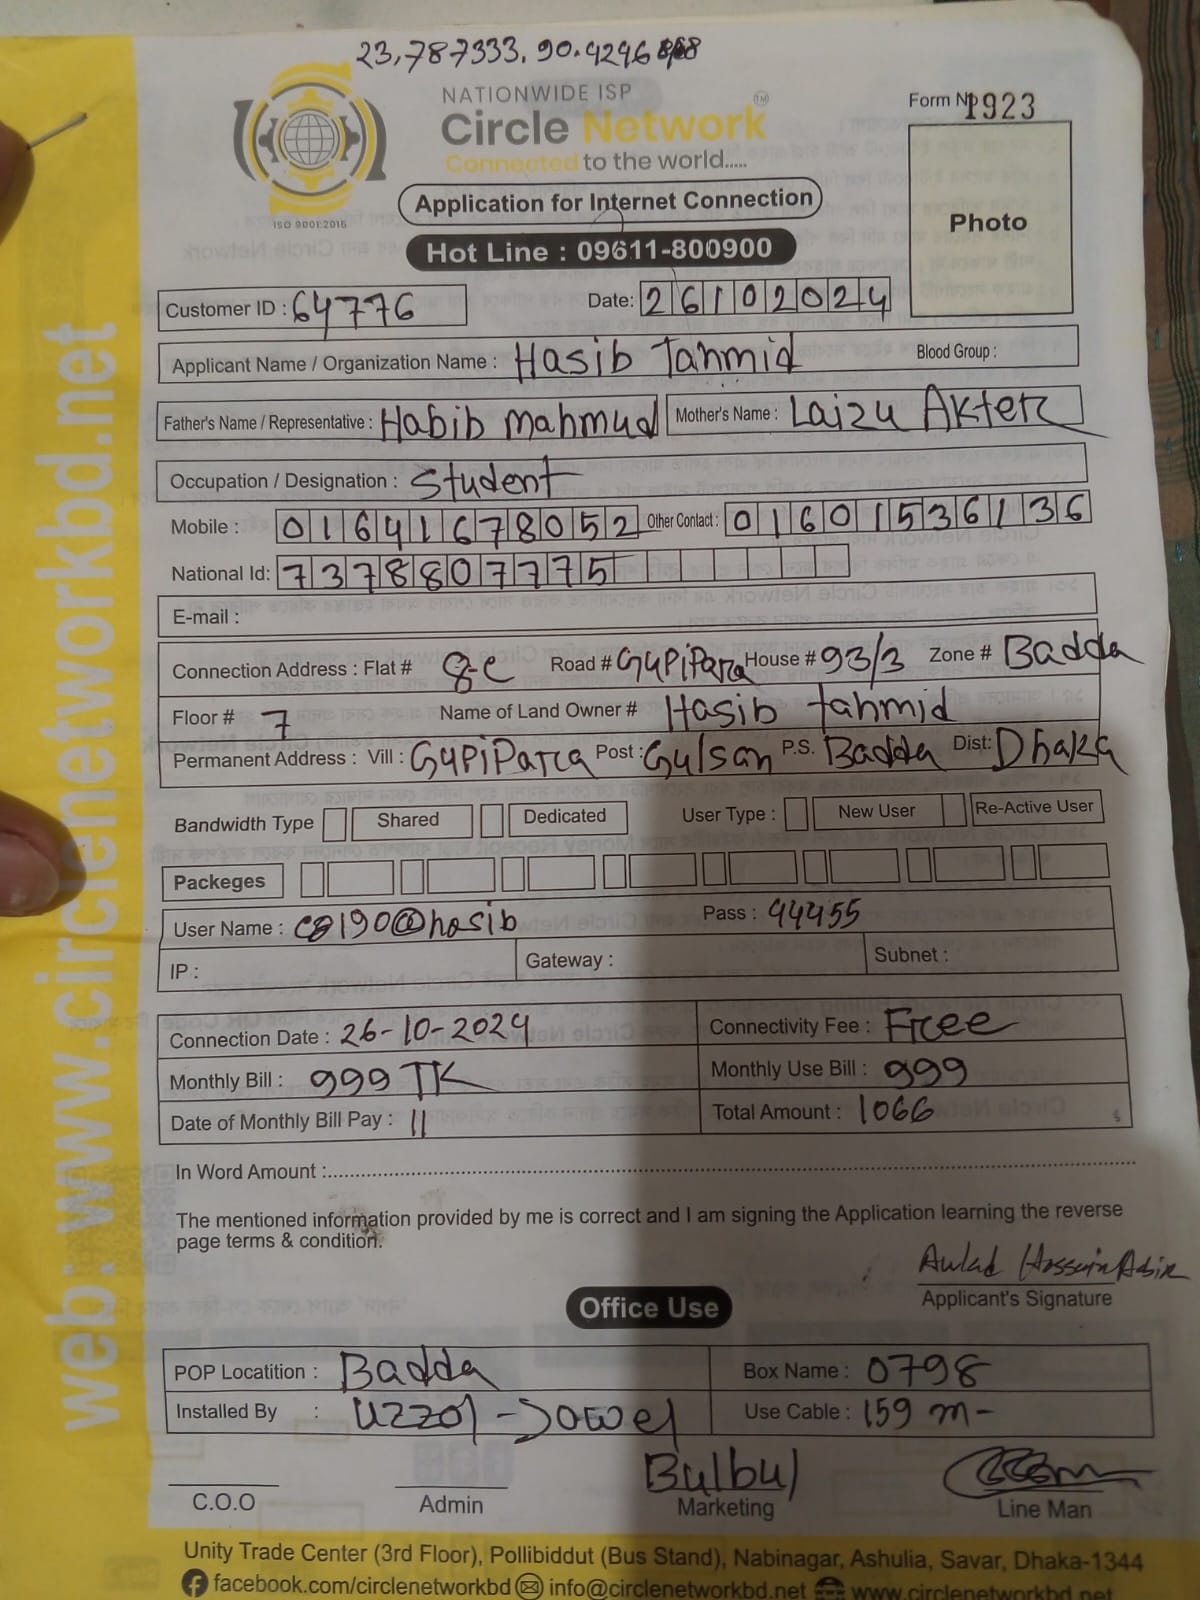 23,787333, 90.4296
NATIONWIDE ISP
Circle Network TM
Connected to the world.....
ISO 9001:2015
Form Nº 1923
Photo
Application for Internet Connection
Hot Line : 09611-800900
Customer ID : 64776 Date: 26102024
Applicant Name / Organization Name : Hasib Tahmid Blood Group :
Father's Name / Representative : Habib Mahmud Mother's Name : Laizu Akter
Occupation / Designation : Student
Mobile : 01641678052 Other Contact : 01601536136
National Id: 7378807775
E-mail :
Connection Address : Flat # 8-C Road # GupiPara House # 93/3 Zone # Badda
Floor # 7 Name of Land Owner # Hasib tahmid
Permanent Address : Vill : GupiPara Post : Gulsan P.S. Badda Dist: Dhaka
Bandwidth Type Shared Dedicated User Type : New User Re-Active User
Packeges
User Name : C8190@hasib Pass : 44455
IP : Gateway : Subnet :
Connection Date : 26-10-2024 Connectivity Fee : Free
Monthly Bill : 999 TK Monthly Use Bill : 999
Date of Monthly Bill Pay : 11 Total Amount : 1066
In Word Amount :
The mentioned information provided by me is correct and I am signing the Application learning the reverse
page terms & condition.
Awlad Hossein Abir
Applicant's Signature
Office Use
POP Locatition : Badda Box Name : 0798
Installed By : Uzzol-Jowel Use Cable : 159 m-
Bulbul
C.O.O Admin Marketing Line Man
Unity Trade Center (3rd Floor), Pollibiddut (Bus Stand), Nabinagar, Ashulia, Savar, Dhaka-1344
facebook.com/circlenetworkbd info@circlenetworkbd.net www.circlenetworkbd.net
web: www.circlenetworkbd.net